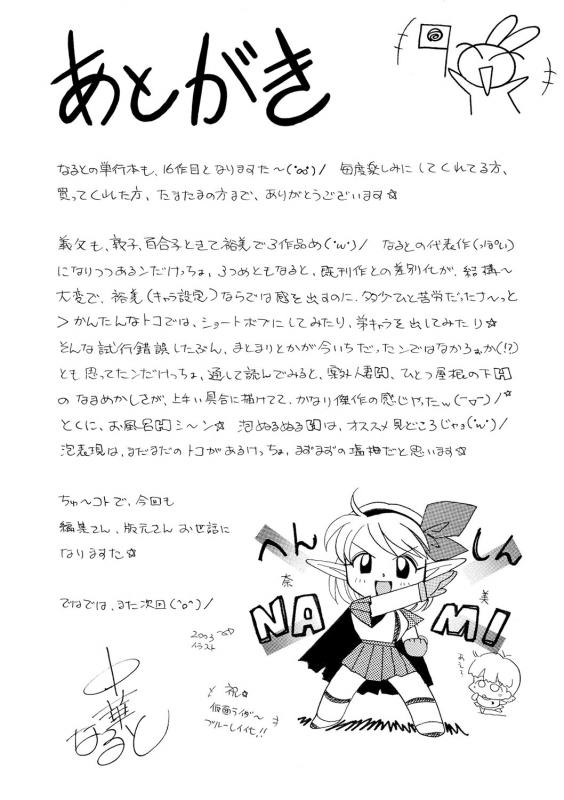 あとがき
なるとの単行本も、16作目となりますた～(°ο°)/ 毎度楽しみにしてくれてる方、
買ってくれた方、たまたまの方まで、ありがとうございます☆
義父も、敦子、百合子ときて裕美で3作品め(・w・)/ なるとの代表作(っぽい)
になりつつあるンだけっちょ、3つめともなると、既刊作との差別化が、結構～
大変で、裕美(キャラ設定)ならでは感を出すのに、多少ひと苦労だったナ～っと
＞かんたんなトコでは、ショートボブにしてみたり、弟キャラを出してみたり☆
そんな試行錯誤したぶん、まとまりとかが今いちだったンではなかろぉか(!?)
とも思ってたンだけっちょ、通して読んでみると、案外人妻、ひとつ屋根の下
のなまめかしさが、上手い具合に描けてて、かなり傑作の感じやったw(ー▽ー)/☆
とくに、お風呂シ～ン☆ 泡ぬるぬるは、オススメ見どころじゃョ(・w・)/
泡表現は、まだまだのトコがあるけっちょ、まずまずの塩梅だと思います☆
ちゅ～コトで、今回も
編集さん、版元さんお世話に
なりますた☆
でわでは、また次回(^o^)/
へん しん
奈 美
NA MI
2003
イラスト
祝☆
仮面ライダ～
ブルーレイ化!!
中華なると